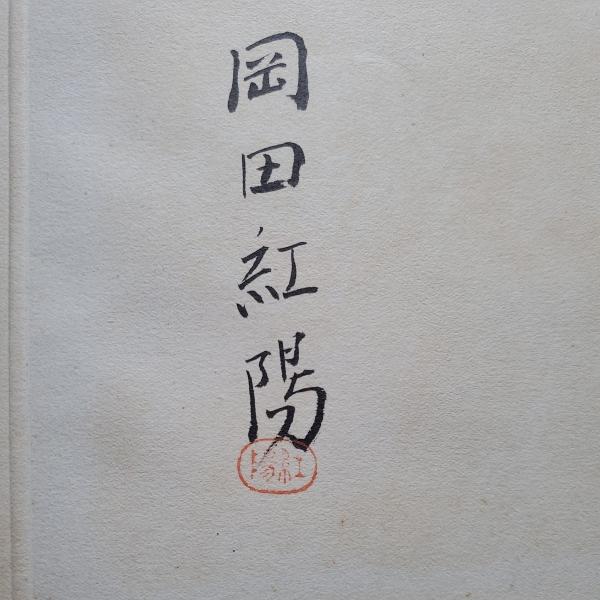 岡田紅陽
紅陽